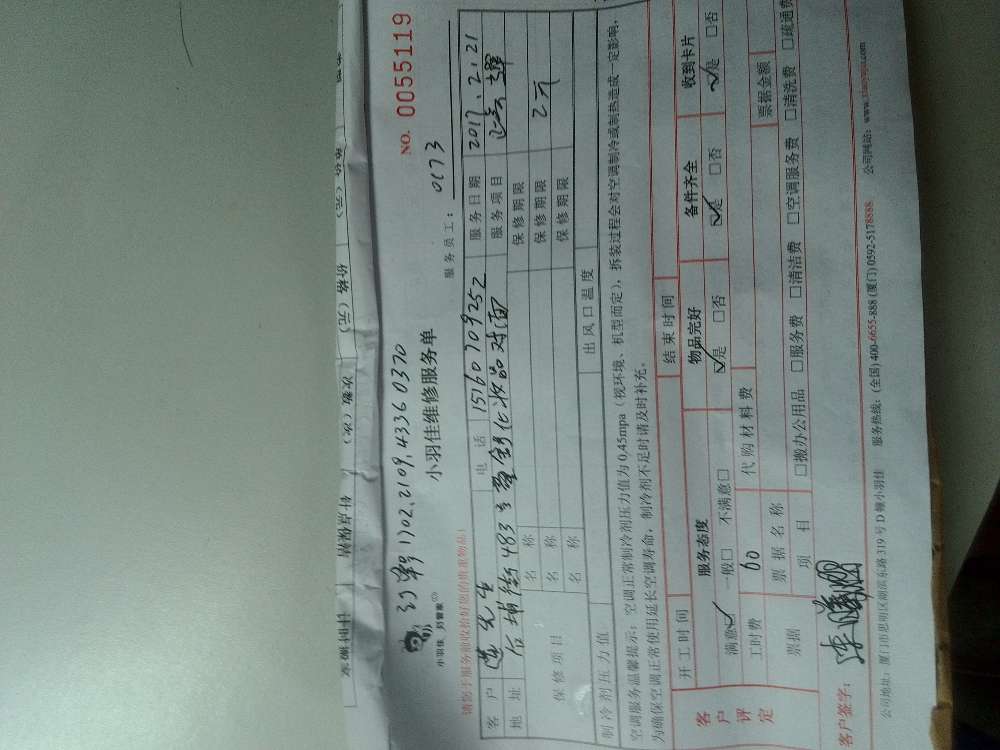 NO. 0055119
订单号1702.2109.4336 0370
小羽佳维修服务单
小羽佳，好管家
服务员工： 0173
请您于服务前收拾好您的贵重物品！
客 户 先生 电 话 15160709252 服务日期 2017.2.21
地 址 后埔街483号 化妆品对面 服务项目
保修项目 名 称 保修期限
名 称 保修期限 2元
名 称 保修期限
制冷剂压力值 出风口温度
空调服务温馨提示：空调正常制冷剂压力值为0.45mpa（视环境、机型而定），拆装过程会对空调制冷或制热造成一定影响，
为确保空调正常使用延长空调寿命，制冷剂不足时请及时补充。
开工时间 结束时间
客户评定 服务态度 物品完好 备件齐全 收到卡片
满意☑ 一般□ 不满意□ ☑是 □否 ☑是 □否 ☑是 □否
工时费 60 代购材料费
票据 票据名称 票据金额
项 目 □搬办公用品 □服务费 □清洁费 □空调服务费 □清洗费 □疏通费
客户签字：
公司地址：厦门市思明区湖滨东路319号D幢小羽佳 服务热线：(全国) 400-6655-888 (厦门) 0592-5178888 公司网站：www.xiaoyujia.com